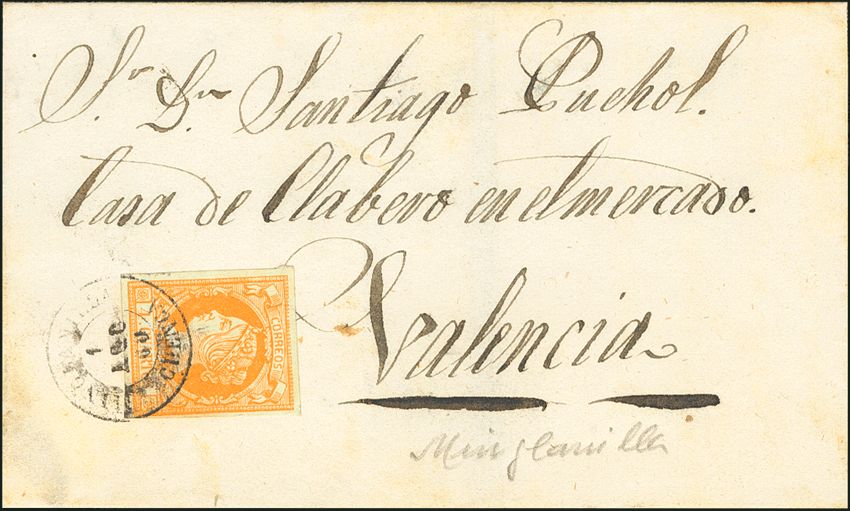 Sr. Dn. Santiago Puchol.
Casa de Clabero en el mercado.
Valencia
CORREOS
1
AGO
60
CUENCA
Minglanilla